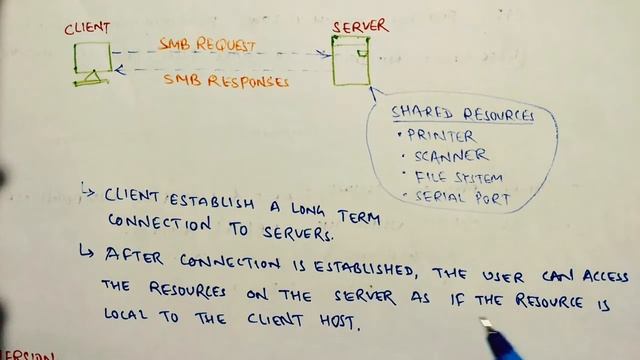 CLIENT
SERVER
SMB REQUEST
SMB RESPONSES
SHARED RESOURCES
• PRINTER
• SCANNER
• FILE SYSTEM
• SERIAL PORT
↳ CLIENT ESTABLISH A LONG TERM
CONNECTION TO SERVERS.
↳ AFTER CONNECTION IS ESTABLISHED, THE USER CAN ACCESS
THE RESOURCES ON THE SERVER AS IF THE RESOURCE IS
LOCAL TO THE CLIENT HOST.